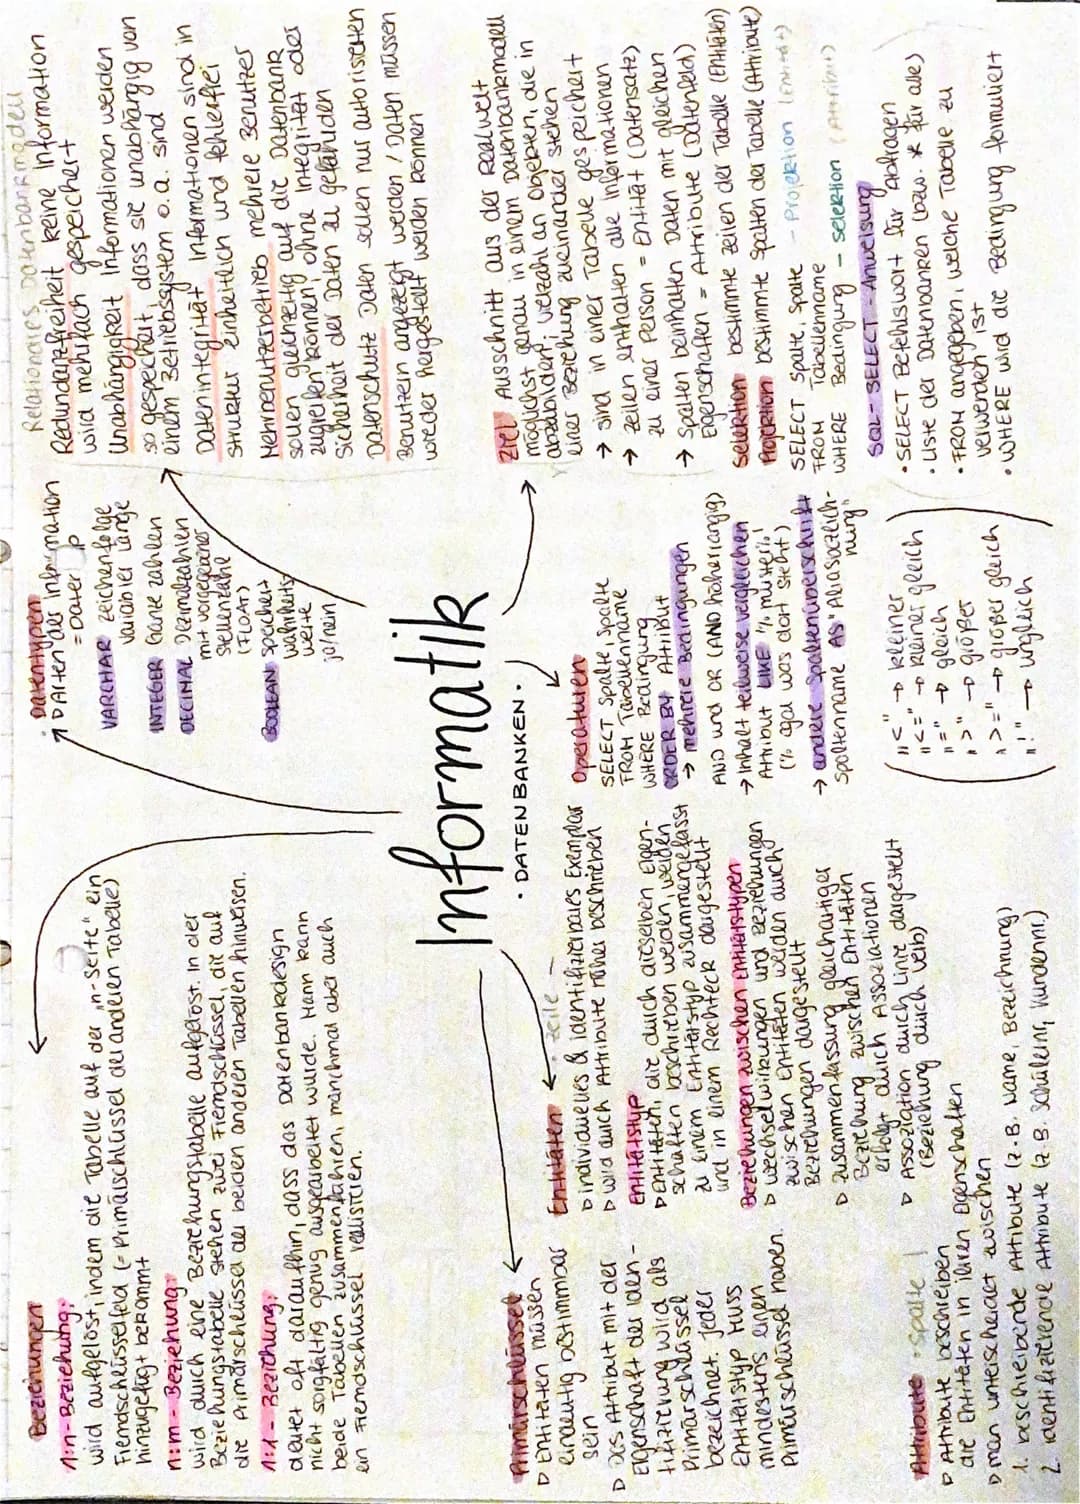 Beziehungen
1:n-Beziehung:
wird aufgelöst, indem die Tabelle auf der „n-Seite" ein
Fremdschlüsselfeld (= Primärschlüssel der anderen Tabelle)
hinzugefügt bekommt
n:m - Beziehung:
wird durch eine Beziehungstabelle aufgelöst. In der
Beziehungstabelle stehen zwei Fremdschlüssel, die auf
die Primärschlüssel der beiden anderen Tabellen hinweisen.
1:1 - Beziehung:
deutet oft daraufhin, dass das Datenbankdesign
nicht sorgfältig genug ausgearbeitet wurde. Mann kann
beide Tabellen zusammenführen, manchmal aber auch
ein Fremdschlüssel realisieren.
Datentypen
Arten der Information
= Datentyp
VARCHAR Zeichenfolge
variabler Länge
INTEGER Ganze Zahlen
DECIMAL Dezimalzahlen
mit vorgegebener
Stellenzahl
(FLOAT)
BOOLEAN speichert
Wahrheits
werte
ja/nein
Relationales Datenbankmodell
Redundanzfreiheit keine Information
wird mehrfach gespeichert
Unabhängigkeit Informationen werden
so gespeichert, dass sie unabhängig von
einem Betriebssystem o.a. sind
Datenintegrität Informationen sind in
struktur einheitlich und fehlerfrei
Mehrbenutzerbetrieb mehrere Benutzer
sollen gleichzeitig auf die Datenbank
zugreifen können, ohne Integrität oder
Sicherheit der Daten zu gefährden
Datenschutz Daten sollen nur autorisierten
Benutzern angezeigt werden / Daten müssen
wieder hergestellt werden können
Informatik
· DATENBANKEN ·
Primärschlüssel
Entitäten müssen
eindeutig bestimmbar
sein
Das Attribut mit der
Eigenschaft der Iden-
tifizierung wird als
Primärschlüssel
bezeichnet. Jeder
Entitätstyp muss
mindestens einen
Primärschlüssel haben.
Entitäten - Zeile -
individuelles & identifizierbares Exemplar
wird durch Attribute näher beschrieben
Entitätstyp
Entitäten, die durch dieselben Eigen-
schaften beschrieben werden, werden
zu einem Entitätstyp zusammengefasst
und in einem Rechteck dargestellt
Beziehungen zwischen Entitätstypen
Wechselwirkungen und Beziehungen
zwischen Entitäten werden durch
Beziehungen dargestellt
Zusammenfassung gleichartiger
Beziehung zwischen Entitäten
erfolgt durch Assoziationen
Assoziation durch Linie dargestellt
(Beziehung durch Verb)
Attribute - Spalte |
Attribute beschreiben
die Entitäten in ihren Eigenschaften
man unterscheidet zwischen
1. beschreibende Attribute (z.B. Name, Bezeichnung)
2. identifizierende Attribute (z.B. Schülernr, Kundennr.)
Operatoren
SELECT Spalte, Spalte
FROM Tabellenname
WHERE Bedingung
ORDER BY Attribut
→ mehrere Bedingungen
AND und OR (AND höherrangig)
→ Inhalt teilweise vergleichen
Attribut LIKE '%muster%'
(% egal was dort steht)
→ andere Spaltenüberschrift
Spaltenname AS "Absatzbeich-
nung"
"<" → kleiner
"<=" → kleiner gleich
"=" → gleich
">" → größer
">=" → größer gleich
"!" → ungleich
Ziel Ausschnitt aus der Realwelt
möglichst genau in einem Datenbankmodell
abzubilden; Vielzahl an Objekten, die in
einer Beziehung zueinander stehen
→ sind in einer Tabelle gespeichert
→ Zeilen enthalten alle Informationen
zu einer Person = Entität (Datensatz)
→ Spalten beinhalten Daten mit gleichen
Eigenschaften = Attribute (Datenfeld)
Selektion bestimmte Zeilen der Tabelle (Entitäten)
Projektion bestimmte Spalten der Tabelle (Attribute)
SELECT Spalte, Spalte - Projektion (Entität)
FROM Tabellenname
WHERE Bedingung - Selektion (Attribut)
SQL - SELECT - Anweisung
• SELECT Befehlswort für Abfragen
• Liste der Datenbanken (bzw. * für alle)
• FROM angegeben, welche Tabelle zu
verwenden ist
• WHERE wird die Bedingung formuliert